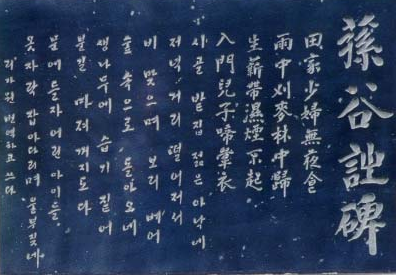 蓀谷詩碑
田家少婦無夜食
雨中刈麥林中歸
生薪帶濕煙不起
入門兒子啼牽衣
시골 밭집 젊은 아낙네
저녁거리 떨어져서
비 맞으며 보리 베어
숲 속으로 돌아오네
생나무에 습기 짙어
불길 마저 꺼지도다
문에 들자 어린 아이들
옷자락 잡아다리며 울부짖네
리가원 번역하고 쓰다